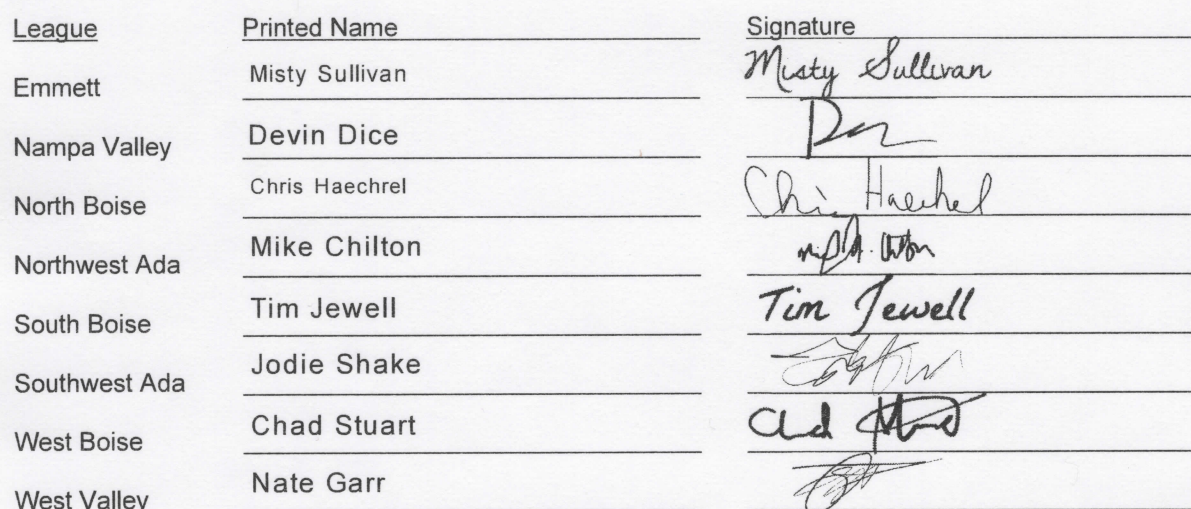 League Printed Name Signature
Emmett Misty Sullivan Misty Sullivan
Nampa Valley Devin Dice
North Boise Chris Haechrel Chris Haechrel
Northwest Ada Mike Chilton
South Boise Tim Jewell Tim Jewell
Southwest Ada Jodie Shake
West Boise Chad Stuart Chad
West Valley Nate Garr